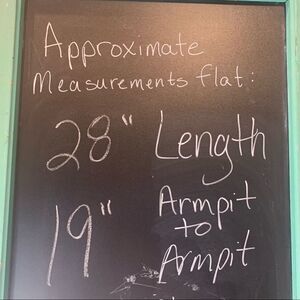 Approximate
Measurements flat:
28" Length
19" Armpit
to
Armpit